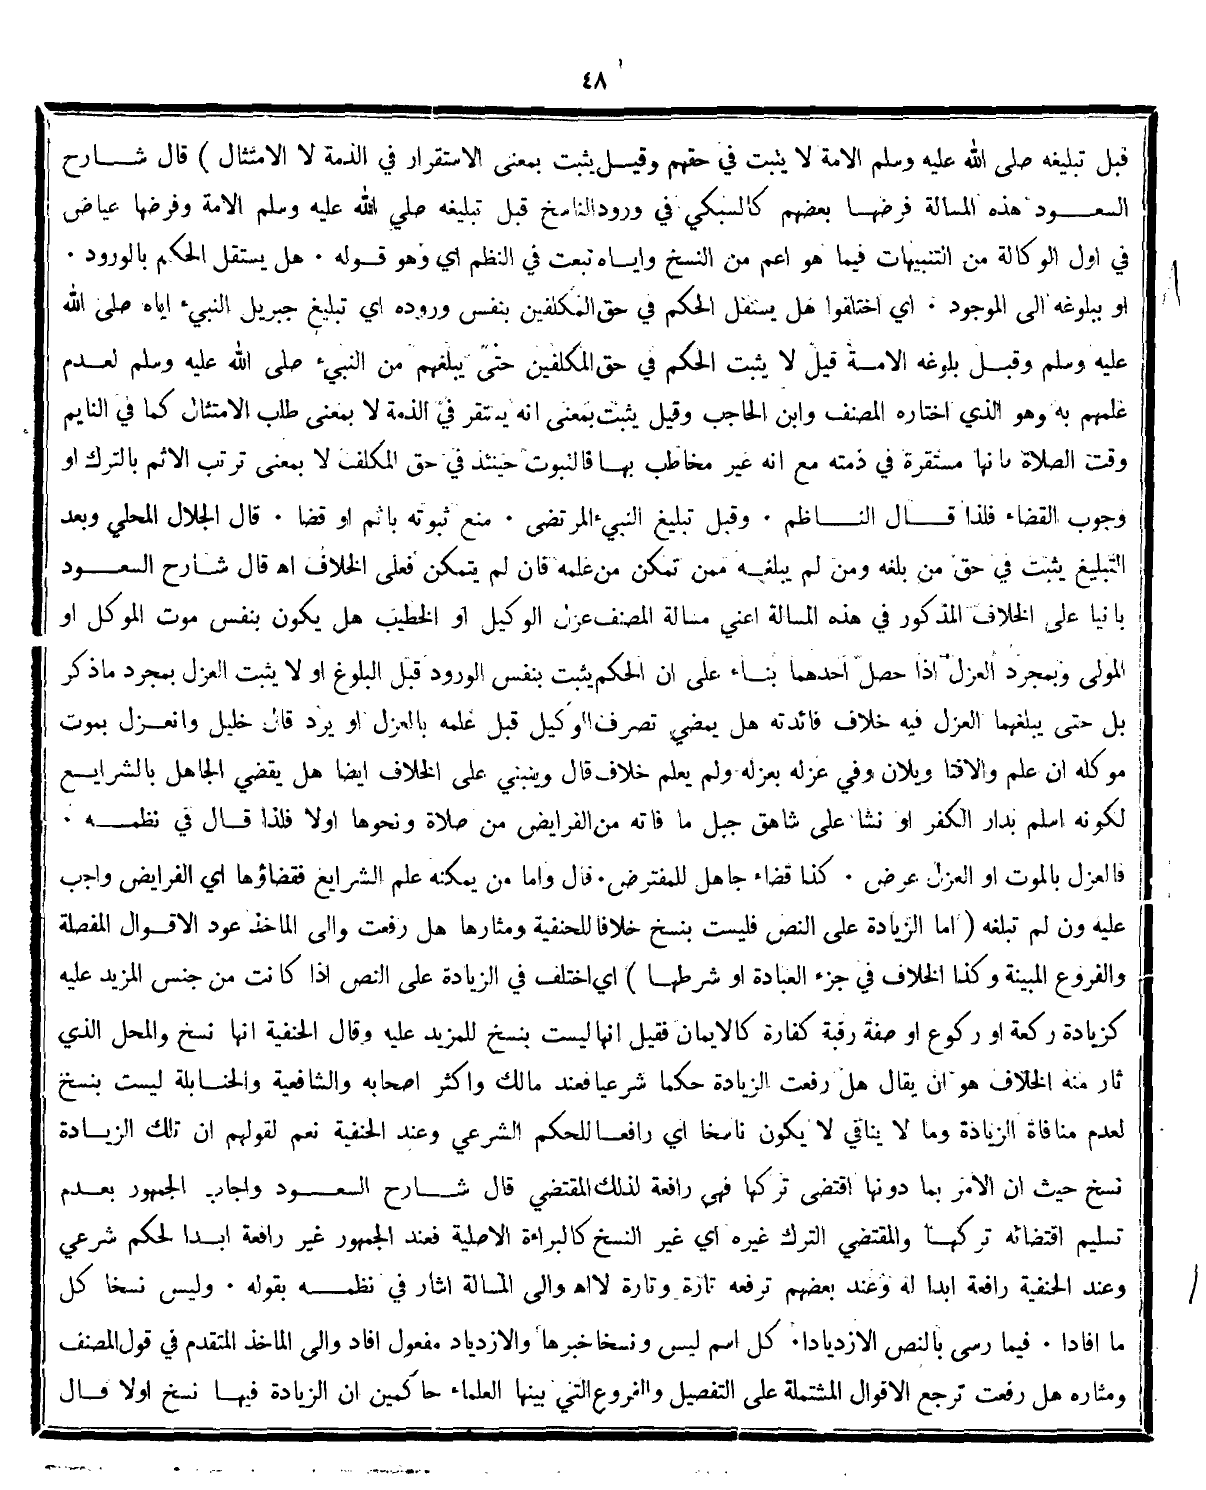 ٤٨
قبل تبليغه صلى الله عليه وسلم الامة لا يثبت في حقهم وقيل يثبت بمعنى الاستقرار في الذمة لا الامتثال ) قال شارح
السعود هذه المسالة فرضها بعضهم كالسبكي في ورود الناسخ قبل تبليغه صلي الله عليه وسلم الامة وفرضها عياض
في اول الوكالة من التنبيهات فيما هو اعم من النسخ واياه تبعت في النظم اي وهو قوله · هل يستقل الحكم بالورود ·
او ببلوغه الى الموجود · اي اختلفوا هل يستقل الحكم في حق المكلفين بنفس وروده اي تبليغ جبريل النبيء اياه صلى الله
عليه وسلم وقبل بلوغه الامة قيل لا يثبت الحكم في حق المكلفين حتى يبلغهم من النبيء صلى الله عليه وسلم لعدم
علمهم به وهو الذي اختاره المصنف وابن الحاجب وقيل يثبت بمعنى انه يستقر في الذمة لا بمعنى طلب الامتثال كما في النايم
وقت الصلاة بانها مستقرة في ذمته مع انه غير مخاطب بها فالثبوت حينئذ في حق المكلف لا بمعنى ترتب الاثم بالترك او
وجوب القضاء فلذا قال الناظم · وقبل تبليغ النبيء المرتضى · منع ثبوته باثم او قضا · قال الجلال المحلي وبعد
التبليغ يثبت في حق من بلغه ومن لم يبلغه ممن تمكن من علمه فان لم يتمكن فعلى الخلاف اه قال شارح السعود
بانيا على الخلاف المذكور في هذه المسالة اعني مسالة المصنف عزل الوكيل او الخطيب هل يكون بنفس موت الموكل او
المولى وبمجرد العزل اذا حصل احدهما بناء على ان الحكم يثبت بنفس الورود قبل البلوغ او لا يثبت العزل بمجرد ماذكر
بل حتى يبلغهما العزل فيه خلاف فائدته هل يمضي تصرف الوكيل قبل علمه بالعزل او يرد قال خليل وانعزل بموت
موكله ان علم والافتا ويلان وفي عزله بعزله ولم يعلم خلاف قال وينبني على الخلاف ايضا هل يقضي الجاهل بالشرايع
لكونه اسلم بدار الكفر او نشا على شاهق جبل ما فاته من الفرايض من صلاة ونحوها اولا فلذا قال في نظمه ·
فالعزل بالموت او العزل عرض · كذا قضاء جاهل للمفترض · قال واما من يمكنه علم الشرايع فقضاؤها اي الفرايض واجب
عليه ون لم تبلغه ( اما الزيادة على النص فليست بنسخ خلافا للحنفية ومثارها هل رفعت والى الماخذ عود الاقوال المفصلة
والفروع المبينة وكذا الخلاف في جزء العبادة او شرطها ) اي اختلف في الزيادة على النص اذا كانت من جنس المزيد عليه
كزيادة ركعة او ركوع او صفة رقبة كفارة كالايمان فقيل انها ليست بنسخ للمزيد عليه وقال الحنفية انها نسخ والمحل الذي
ثار منه الخلاف هو ان يقال هل رفعت الزيادة حكما شرعيا فعند مالك واكثر اصحابه والشافعية والحنابلة ليست بنسخ
لعدم منافاة الزيادة وما لا ينافي لا يكون ناسخا اي رافعا للحكم الشرعي وعند الحنفية نعم لقولهم ان تلك الزيادة
نسخ حيث ان الامر بما دونها اقتضى تركها فهي رافعة لذلك المقتضي قال شارح السعود واجاب الجمهور بعدم
تسليم اقتضائه تركها والمقتضي الترك غيره اي غير النسخ كالبراءة الاصلية فعند الجمهور غير رافعة ابدا لحكم شرعي
وعند الحنفية رافعة ابدا له وعند بعضهم ترفعه تارة وتارة لااه والى المسالة اشار في نظمه بقوله · وليس نسخا كل
ما افادا · فيما رسى بالنص الازديادا · كل اسم ليس ونسخا خبرها والازدياد مفعول افاد والى الماخذ المتقدم في قول المصنف
ومثاره هل رفعت ترجع الاقوال المشتملة على التفصيل والفروع التي بينها العلماء حاكمين ان الزيادة فيها نسخ اولا قال